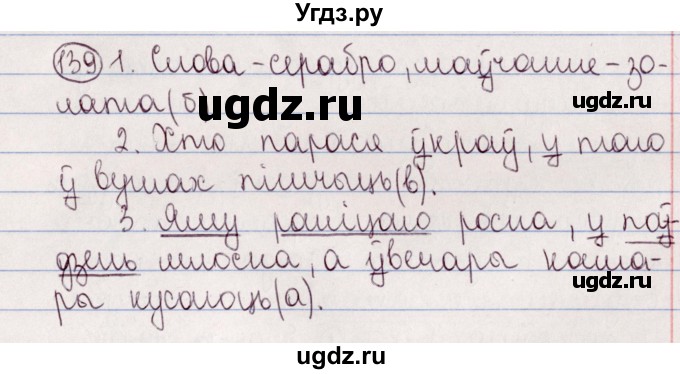 Угдз.ру
139 1. Слова - серабро, маўчанне - зо-
лата (б)
ugdz.ru
2. Хто парася ўкраў, у таго
ў вушах пішчыць (в).
3. Яму раніцаю росна, у паў-
дзень млосна, а ўвечары кама-
ры кусаюць (а).
ugdz.ru
ugdz.ru